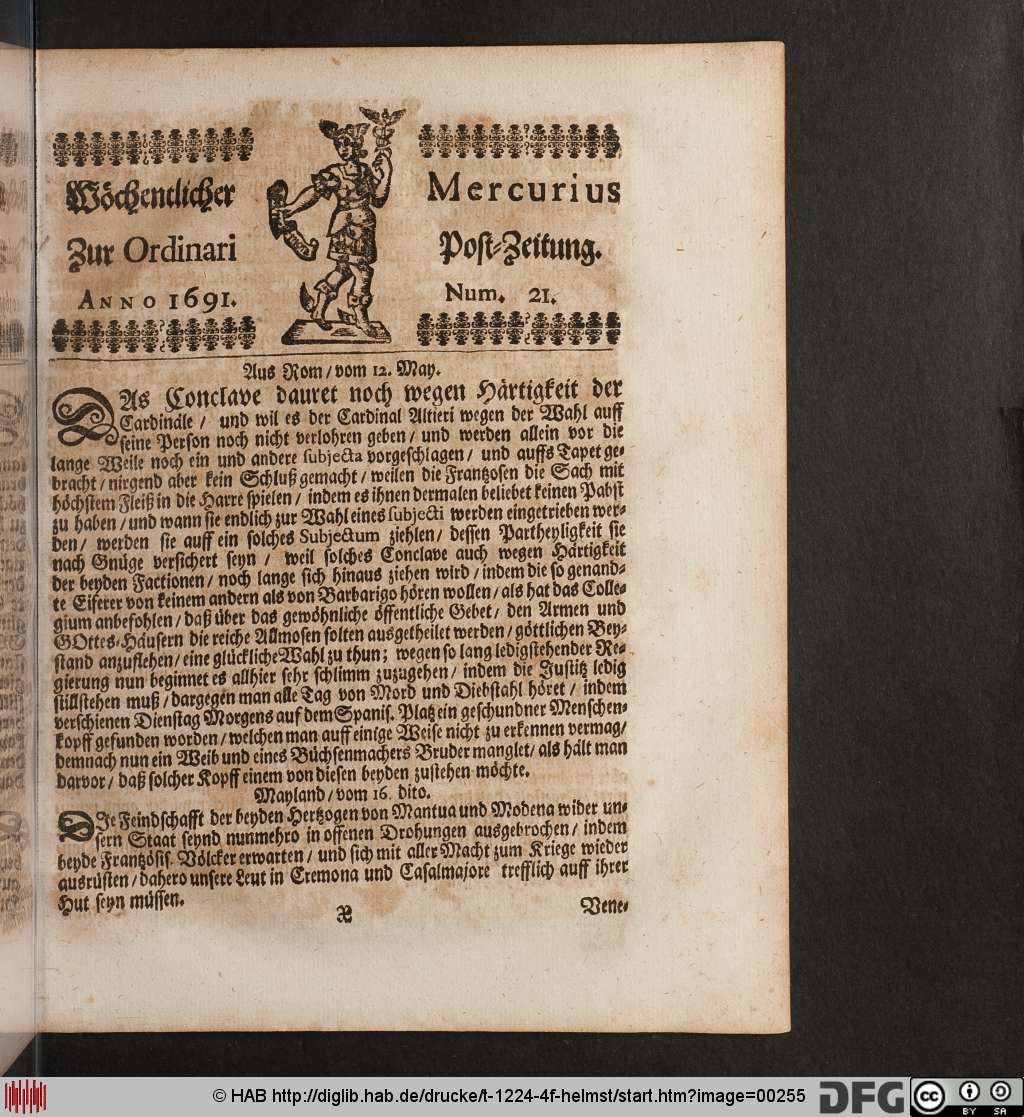 Wöchentlicher Mercurius
Zur Ordinari Post-Zeitung.
ANNO 1691. Num. 21.
Aus Rom / vom 12. May.
DAs Conclave dauret noch wegen Härtigkeit der
Cardinäle / und wil es der Cardinal Altieri wegen der Wahl auff
seine Person noch nicht verlohren geben / und werden allein vor die
lange Weile noch ein und andere subjecta vorgeschlagen / und auffs Tapet ge-
bracht / nirgend aber kein Schluß gemacht / weilen die Frantzosen die Sach mit
höchstem Fleiß in die Harre spielen / indem es ihnen dermalen beliebet keinen Pabst
zu haben / und wann sie endlich zur Wahl eines subjecti werden eingetrieben wer-
den / werden sie auff ein solches Subjectum ziehlen / dessen Partheyligkeit sie
nach Gnüge versichert seyn / weil solches Conclave auch wegen Härtigkeit
der beyden Factionen / noch lange sich hinaus ziehen wird / indem die so genand-
te Eiferer von keinem andern als von Barbarigo hören wollen / als hat das Colle-
gium anbefohlen / daß über das gewöhnliche öffentliche Gebet / den Armen und
GOttes-Häusern die reiche Allmosen solten ausgetheilet werden / göttlichen Bey-
stand anzuflehen / eine glückliche Wahl zu thun; wegen so lang ledigstehender Re-
gierung nun beginnet es allhier sehr schlimm zuzugehen / indem die Justitz ledig
stillstehen muß / dargegen man alle Tag von Mord und Diebstahl höret / indem
verschienen Dienstag Morgens auf dem Spanis. Platz ein geschundner Menschen-
kopff gefunden worden / welchen man auff einige Weise nicht zu erkennen vermag /
demnach nun ein Weib und eines Büchsenmachers Bruder manglet / als hält man
darvor / daß solcher Kopff einem von diesen beyden zustehen möchte.
Mayland / vom 16. dito.
DIe Feindschafft der beyden Hertzogen von Mantua und Modena wider un-
sern Staat seynd nunmehro in offenen Drohungen ausgebrochen / indem
beyde Frantzösis. Völcker erwarten / und sich mit aller Macht zum Kriege wieder
ausrüsten / dahero unsere Leut in Cremona und Casalmajore trefflich auff ihrer
Hut seyn müssen.
X Vene-
© HAB http://diglib.hab.de/drucke/t-1224-4f-helmst/start.htm?image=00255
DFG
cc BY SA